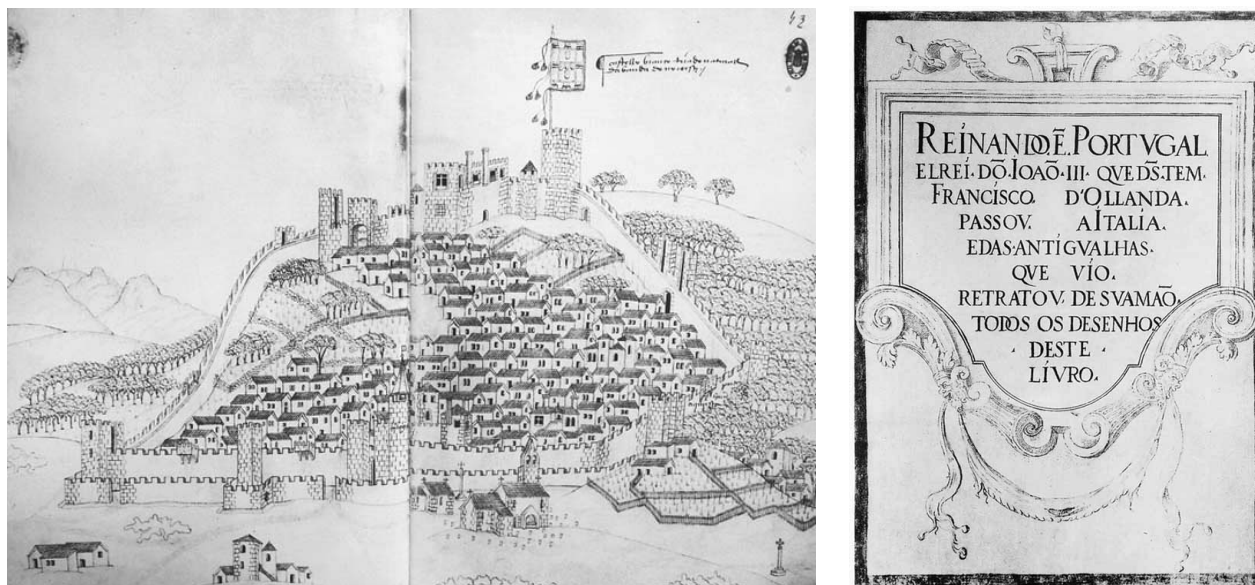 castello branco
REÍNANDO Ē. PORTVGAL
ELREÍ. DÕ. IOAÕ. III. QVE DS̄. TEM.
FRANCÍSCO. D'OLLANDA.
PASSOV. AÍTALÍA.
EDAS·ANTÍGVALHAS·
QVE VÍO.
RETRATOV. DE SVAMÃO.
TODOS OS DESENHOS
· DESTE ·
LÍVRO.